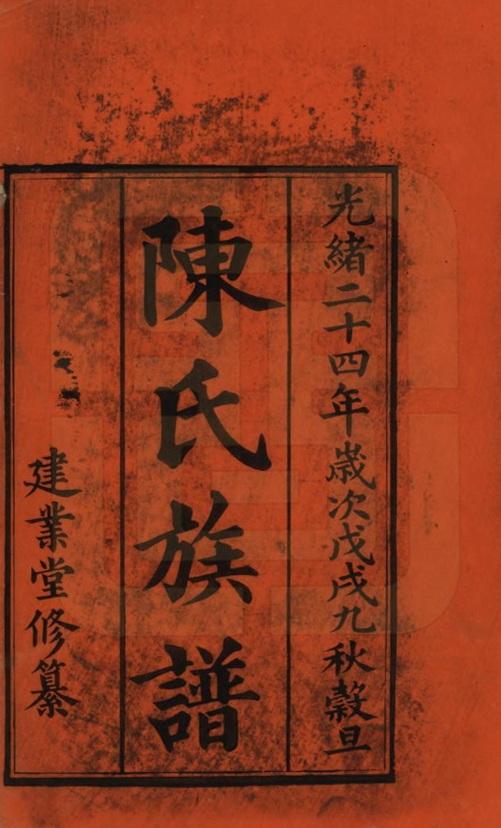 光緒二十四年歲次戊戌九秋穀旦
陳氏族譜
建業堂修纂